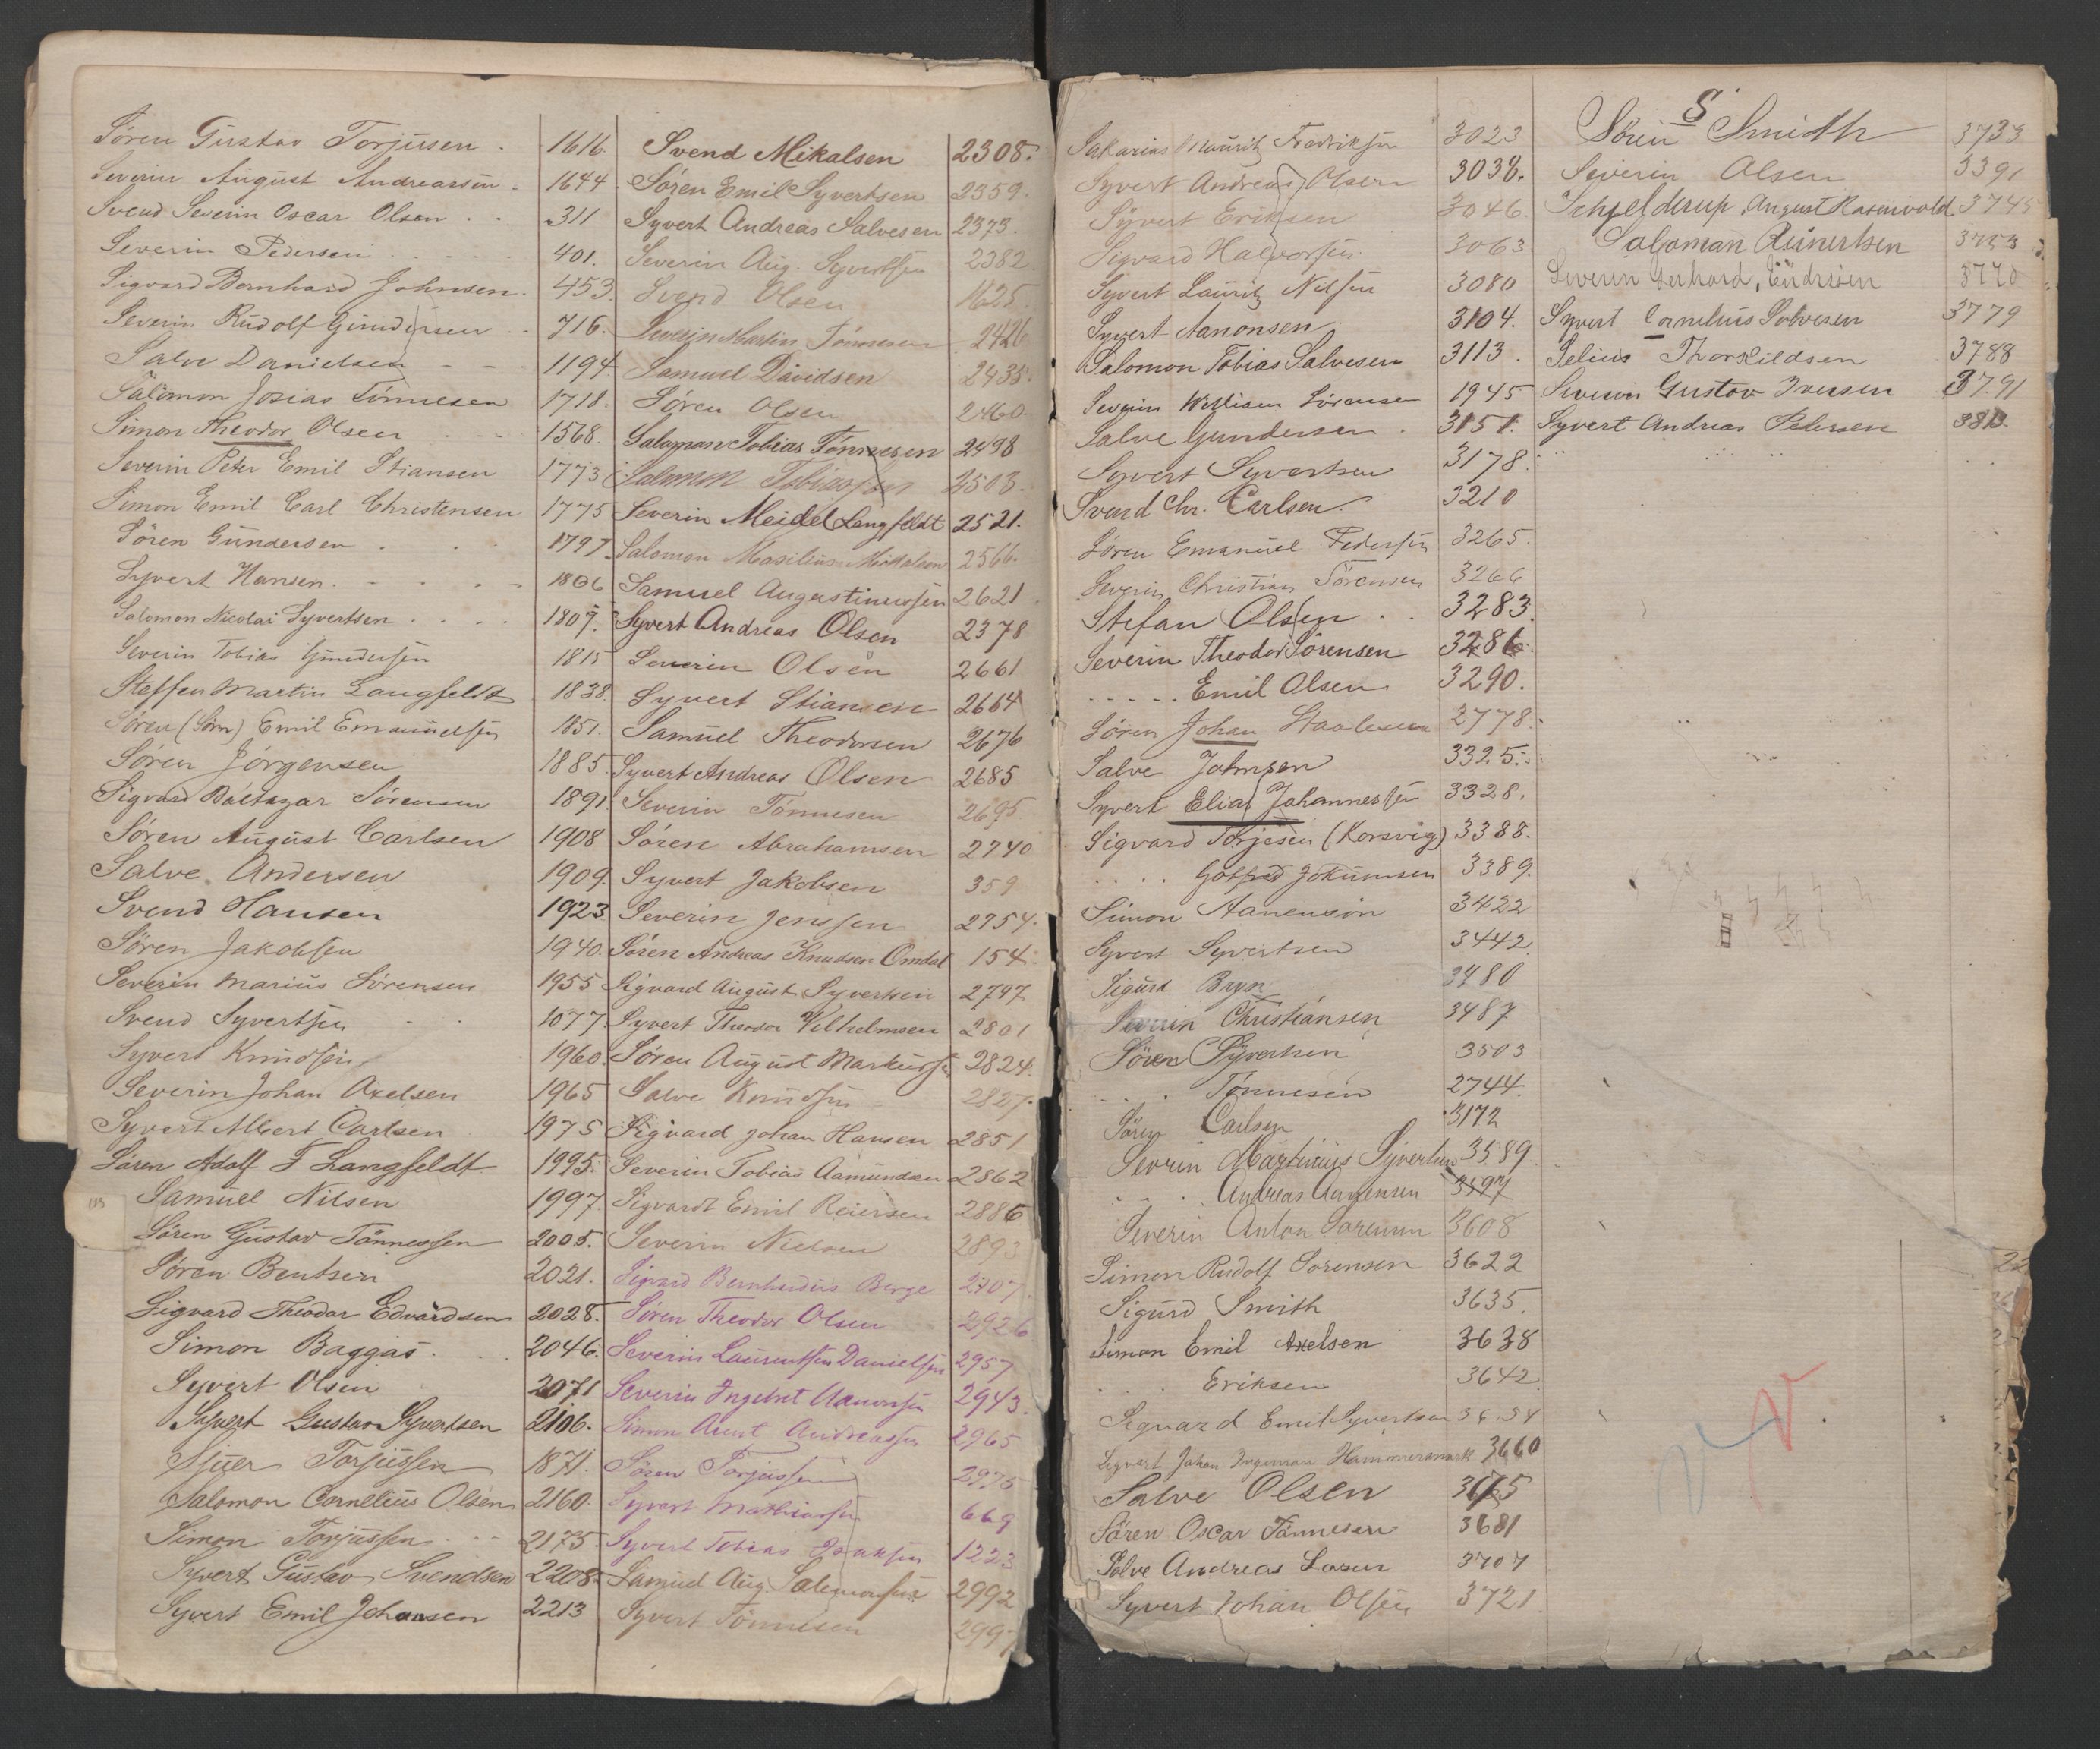 Søren Gustav Torjusen . 1616.
Severin August Andreassen . 1644
Svend Severin Oscar Olsen . . 311
Severin Pedersen . . . . . 401.
Sigvard Bernhard Johnsen . 453.
Severin Rudolf Gundersen . . 716.
Salve Danielsen - - 1194
Salomon Josias Tönnesen 1718.
Simon Theodor Olsen . . . 1568.
Severin Peter Emil Stiansen 1773
Simon Emil Carl Christensen 1775
Sören Gundersen . . . 1797
Syvert Hansen . - . . - 1806
Salomon Nicolai Syvertsen . . . . 1807.
Severin Tobias Gundersen 1815
Steffen Martin Langfeldt 1838.
Søren (Sørn) Emil Emanuelsen 1851.
Søren Jörgensen 1885.
Sigvard Baltazar Sørensen 1891
Søren August Carlsen 1908
Salve Andersen 1909.
Svend Hansen 1923
Søren Jakobsen 1940.
Severin Marius Sörensen 1955
Svend Syvertsen . . 1077
Syvert Knudsen 1960.
Severin Johan Axelsen 1965
Syvert Albert Carlsen 1975
Søren Adolf F Langfeldt 1995.
Samuel Nilsen 1997.
Søren Gustav Tönnessen 2005.
Søren Bentsen 2021.
Sigvard Theodor Edvardsen 2028.
Simon Baggas . . . 2046.
Syvert Olsen 2071
Syvert Gustav Syvertsen 2106.
Torjussen 1871.
Salomon Cornelius Olsen 2160.
Simon Torjussen . - - 2175.
Syvert Gustav Svendsen 2208.
Syvert Emil Johansen 2213
Svend Mikalsen 2308.
Søren Emil Syvertsen 2359.
Syvert Andreas Salvesen 2373.
Severin Aug. Syvertsen 2382
Svend Olsen 1625.
Severin Martin Tönnesen 2426
Samuel Davidsen 2435.
Søren Olsen 2460.
Salomon Tobias Tönnesen 2498
Salomon Tobiassen 2503.
Severin Meidel Langfeldt 2521.
Salomon Mikalsen 2566.
Samuel Augustinussen 2621
Syvert Andreas Olsen 2378
Severin Olsen 2661
Syvert Stiansen 2664
Samuel Theodorsen 2676
Syvert Andreas Olsen 2685
Severin Tönnesen 2695
Søren Abrahamsen 2740
Syvert Jakobsen 359
Severin Jenssen 2754.
Søren Andreas Knudsen Omdal 154.
Sigvard August Syvertsen 2797
Syvert Theodor Vilhelmsen 2801
Søren August Markussen 2824.
Salve Knudsen 2827.
Sigvard Johan Hansen 2851
Severin Tobias Aamundsen 2862
Sigvardt Emil Reiersen 2886
Severin Nielsen 2893
Sigvard Bernhardus Berge 2707
Søren Theodor Olsen 2926
Severin Laurentsen Danielsen 2957
Severin Ingebret Aanonsen 2943.
Simon Arent Andreassen 2965
Søren Torjussen 2975
Syvert Mathiassen 669
Syvert Tobias Isaaksen 1223
Samuel Aug. Salomonsen 2992
Syvert Tönnesen 299
Sakarias Mauritz Fredriksen 3023
Syvert Andreas Olsen 3038.
Syvert Eriksen 3046.
Sigvard Halvorsen 3063
Syvert Lauritz Nilsen 3080
Syvert Aanonsen 3104.
Salomon Tobias Salvesen 3113.
Severin William Sörensen 1945
Salve Gundersen . 3151.
Syvert Syvertsen 3178.
Svend Chr. Carlsen. 3210
Søren Emanuel Pedersen 3265.
Severin Christian Sörensen 3266
Stefan Olsen . . 3283.
Severin Theodor Sörensen 3286.
. . . . . Emil Olsen 3290.
Søren Johan Staalesen 2778.
Salve Johnsen 3325.
Syvert Elias Johannessen 3328.
Sigvard Torjesen (Korsvig) 3388.
. . . . Gotfred Jokumsen 3389.
Simon Aanenson 3422
Syvert Syvertsen 3442.
Sigurd Bryn 3480
Severin Christiansen 3487
Søren Syvertsen 3503
. . . Tönnesen 2744.
Søren Carlsen 3172
Sevrin Martinius Syvertsen 3589
. . . Andreas Aanensen 3597
Severin Anton Sorensen 3608
Simon Rudolf Sorensen 3622
Sigurd Smith 3635.
Simon Emil Axelsen 3638
. . . Eriksen 3642
Segvard Emil Syvertsen 3634
Sigvert Johan Ingeman Hammersmark 3660
Salve Olsen 3665
Søren Oscar Tönnesen 3681
Salve Andreas Larsen 3707
Syvert Johan Olsen 3721
S
Sörin Smith 3733
Severin Olsen 3391
Schjelderup, August Rosenvold 3745
Saloman Reinertsen 3753
Severin Gerhard, Endresen 3770
Syvert Cornelius Solvesen 3779
Selius Thorkildsen 3788
Severin Gustov Iversen 3791
Syvert Andreas Petersen 3813.